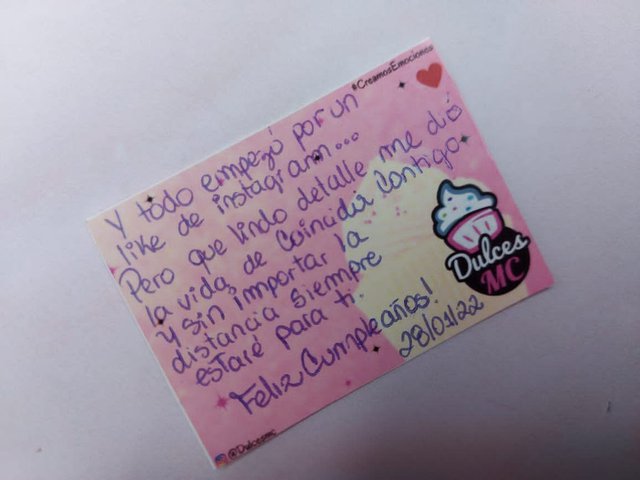 #CreamosEmociones
Y todo empezó por un
like de instagram...
Pero que lindo detalle me dió
la vida, de Coincidir Contigo
y sin importar la
distancia siempre
estaré para ti.
Feliz Cumpleaños!
28/01/22
Dulces
MC
@Dulcesmc